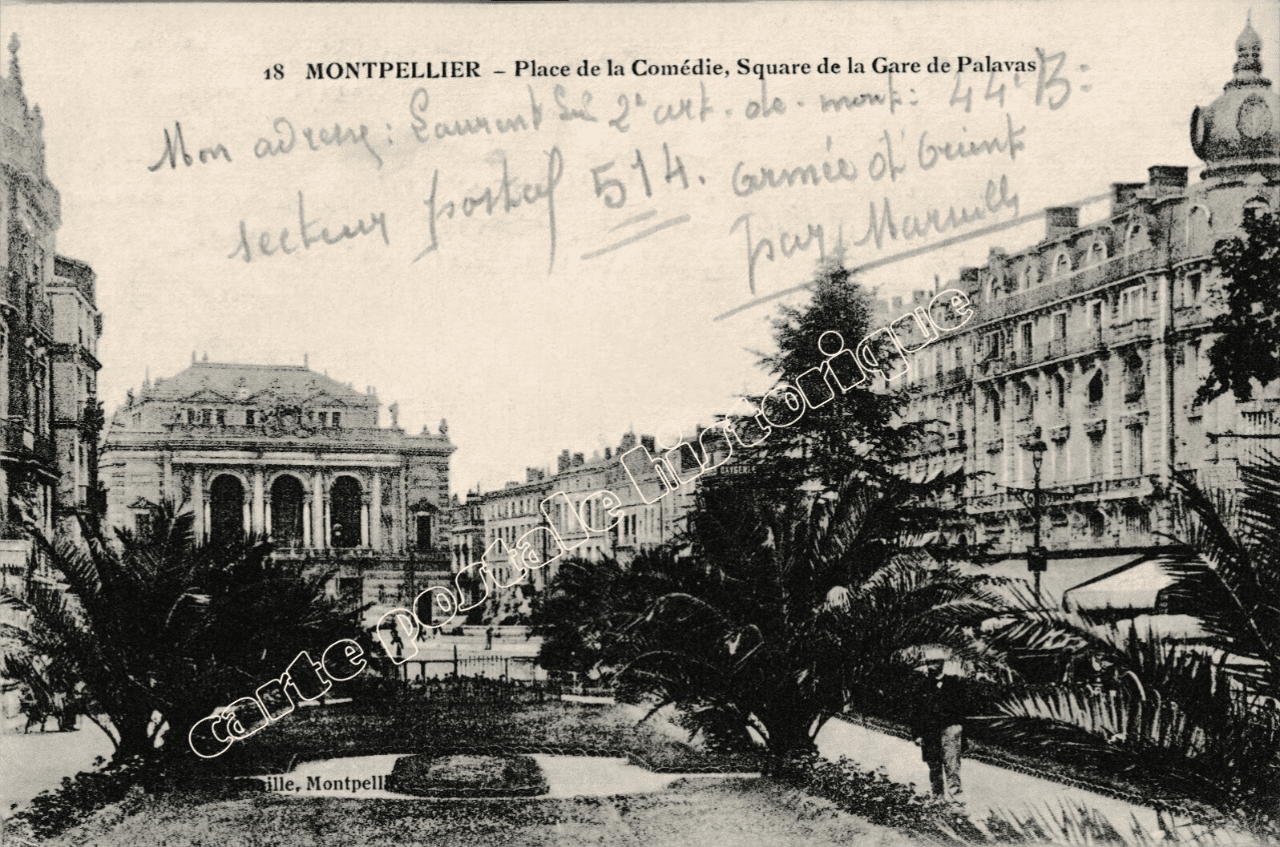 18 MONTPELLIER – Place de la Comédie, Square de la Gare de Palavas
Mon adresse : Laurent 2e art. de mont : 44e B :
secteur postal 514. armée d'Orient
par Marseille
OXYGENEE
carte postale historique
Montpell